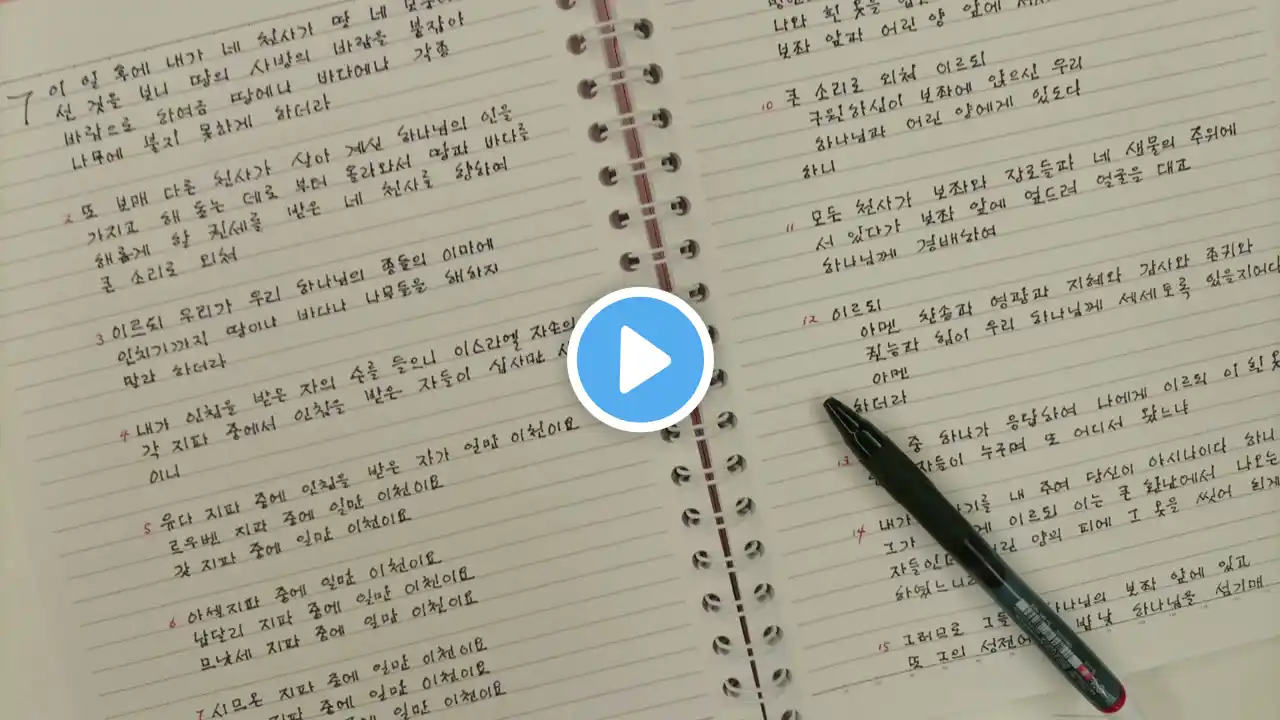 7 이 일 후에 내가 네 천사가 땅 네
선 것을 보니 땅의 사방의 바람을 붙잡아
바람으로 하여금 땅에나 바다에나 각종
나무에 불지 못하게 하더라
2 또 보매 다른 천사가 살아 계신 하나님의 인을
가지고 해 돋는 데로 부터 올라와서 땅과 바다를
해롭게 할 권세를 받은 네 천사를 향하여
큰 소리로 외쳐
3 이르되 우리가 우리 하나님의 종들의 이마에
인치기까지 땅이나 바다나 나무들을 해하지
말라 하더라
4 내가 인침을 받은 자의 수를 들으니 이스라엘 자손의
각 지파 중에서 인침을 받은 자들이 십사만
이니
5 유다 지파 중에 인침을 받은 자가 일만 이천이요
르우벤 지파 중에 일만 이천이요
갓 지파 중에 일만 이천이요
6 아셀지파 중에 일만 이천이요
납달리 지파 중에 일만 이천이요
므낫세 지파 중에 일만 이천이요
7 시므온 지파 중에 일만 이천이요
지파 중에 일만 이천이요
지파 중에 일만 이천이요
나와 흰 옷을
보좌 앞과 어린 양 앞에
10 큰 소리로 외쳐 이르되
구원하심이 보좌에 앉으신 우리
하나님과 어린 양에게 있도다
하니
11 모든 천사가 보좌와 장로들과 네 생물의 주위에
서 있다가 보좌 앞에 엎드려 얼굴을 대고
하나님께 경배하여
12 이르되
아멘 찬송과 영광과 지혜와 감사와 존귀와
권능과 힘이 우리 하나님께 세세토록 있을지어다
아멘
하더라
13 중 하나가 응답하여 나에게 이르되 이 흰
자들이 누구며 또 어디서 왔느냐
14 내가 기를 내 주여 당신이 아시나이다 하니
그가 게 이르되 이는 큰 환난에서 나오는
자들인데 린 양의 피에 그 옷을 씻어 희게
하였느니라
15 그러므로 그들 하나님의 보좌 앞에 있고
또 그의 성전에 밤낮 하나님을 섬기매